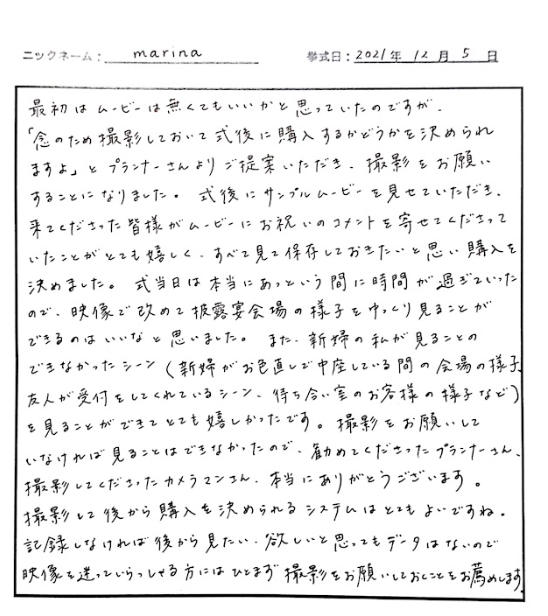 ニックネーム： marina 挙式日：2021年 12月 5日
最初はムービーは無くてもいいかと思っていたのですが、
「念のため撮影しておいて式後に購入するかどうかを決められ
ますよ」とプランナーさんよりご提案いただき、撮影をお願い
することになりました。式後にサンプルムービーを見せていただき、
来てくださった皆様がムービーにお祝いのコメントを寄せてくださって
いたことがとても嬉しく、すべて見て保存しておきたいと思い購入を
決めました。式当日は本当にあっという間に時間が過ぎていった
ので、映像で改めて披露宴会場の様子をゆっくり見ることが
できるのはいいなと思いました。また、新婦の私が見ることの
できなかったシーン（新婦がお色直しで中座している間の会場の様子、
友人が受付をしてくれているシーン、待ち合い室のお客様の様子など）
を見ることができてとても嬉しかったです。撮影をお願いして
いなければ見ることはできなかったので、勧めてくださったプランナーさん、
撮影してくださったカメラマンさん、本当にありがとうございます。
撮影して後から購入を決められるシステムはとてもよいですね。
記録しなければ後から見たい、欲しいと思ってもデータはないので
映像を迷っていらっしゃる方にはひとまず撮影をお願いしておくことをお薦めします